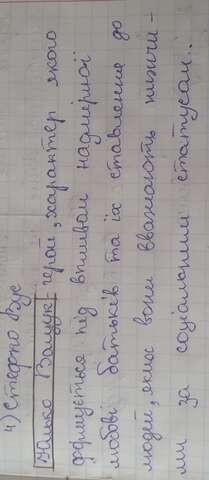 4) Старшо бус
Федько Валцюк: герой, характер якого
формується під впливом надмірної
любові батьків та їх ставлення до
людей, яких вони вважають нижчи-
ми за соціальним статусом.